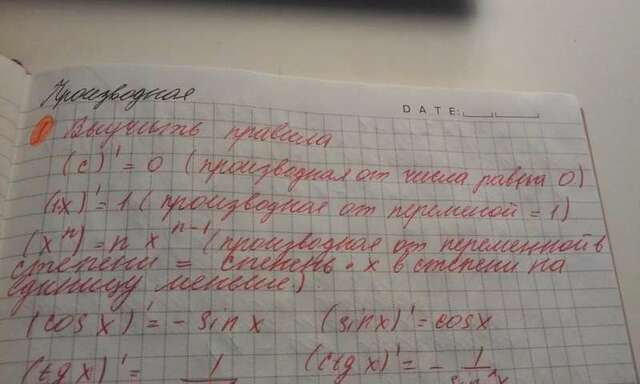 Производная
DATE:
1 Выучить правила
(c)' = 0 (производная от числа равна 0)
(1x)' = 1 (производная от переменой = 1)
(xⁿ) = n xⁿ⁻¹ (производная от переменной в
степени = степень · x в степени на
единицу меньше)
(cos x)' = - sin x (sin x)' = cos x
(tg x)' = 1 (ctg x)' = - 1/sin²x